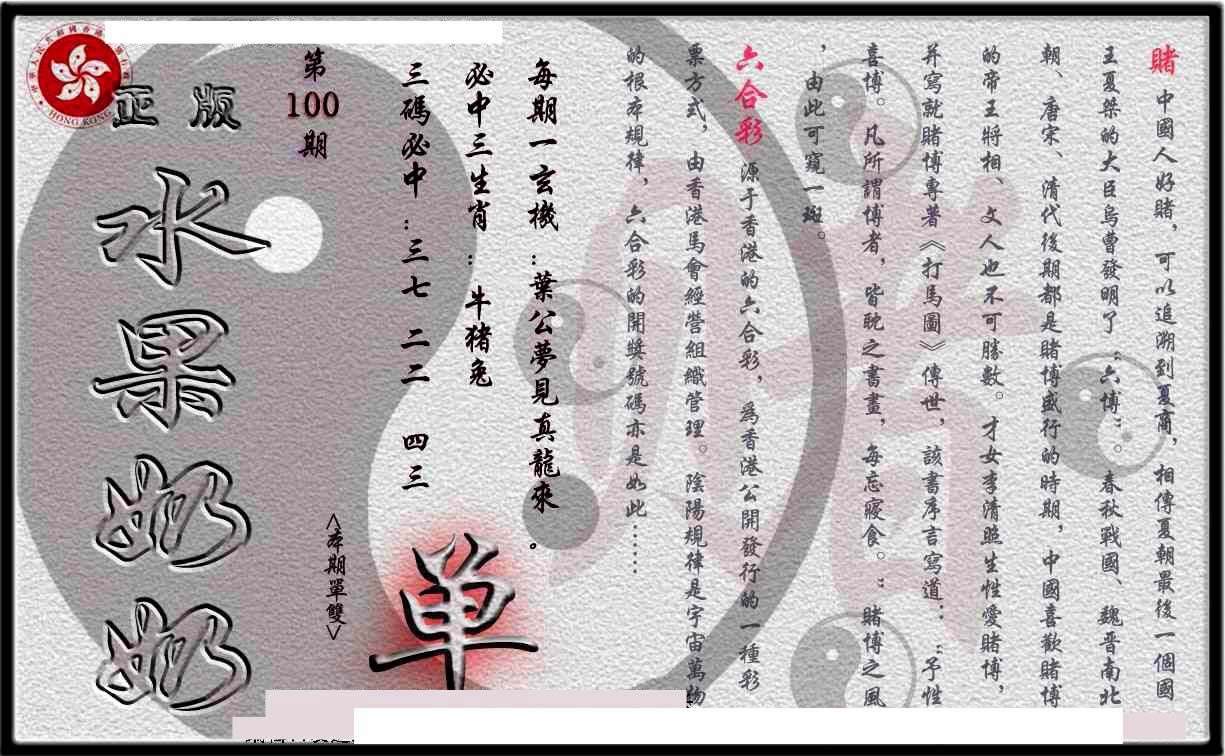 賭 中國人好賭，可以追溯到夏商，相傳夏朝最後一個國
王夏桀的大臣烏曹發明了“六博”。春秋戰國、魏晉南北
朝、唐宋、清代後期都是賭博盛行的時期，中國喜歡賭博
的帝王將相、文人也不可勝數。才女李清照生性愛賭博，
并寫就賭博專著《打馬圖》傳世，該書序言寫道：“予性
喜博。凡所謂博者，皆耽之書畫，每忘寢食。”賭博之風
，由此可窺一斑。
六合彩 源于香港的六合彩，爲香港公開發行的一種彩
票方式，由香港馬會經營組織管理。陰陽規律是宇宙萬物
的根本規律，六合彩的開獎號碼亦是如此……
每期一玄機：葉公夢見真龍來。
必中三生肖：牛猪兔
三碼必中：三七 二二 四三
單
<本期單雙>
第100期
正版
水果奶奶
HONG KONG